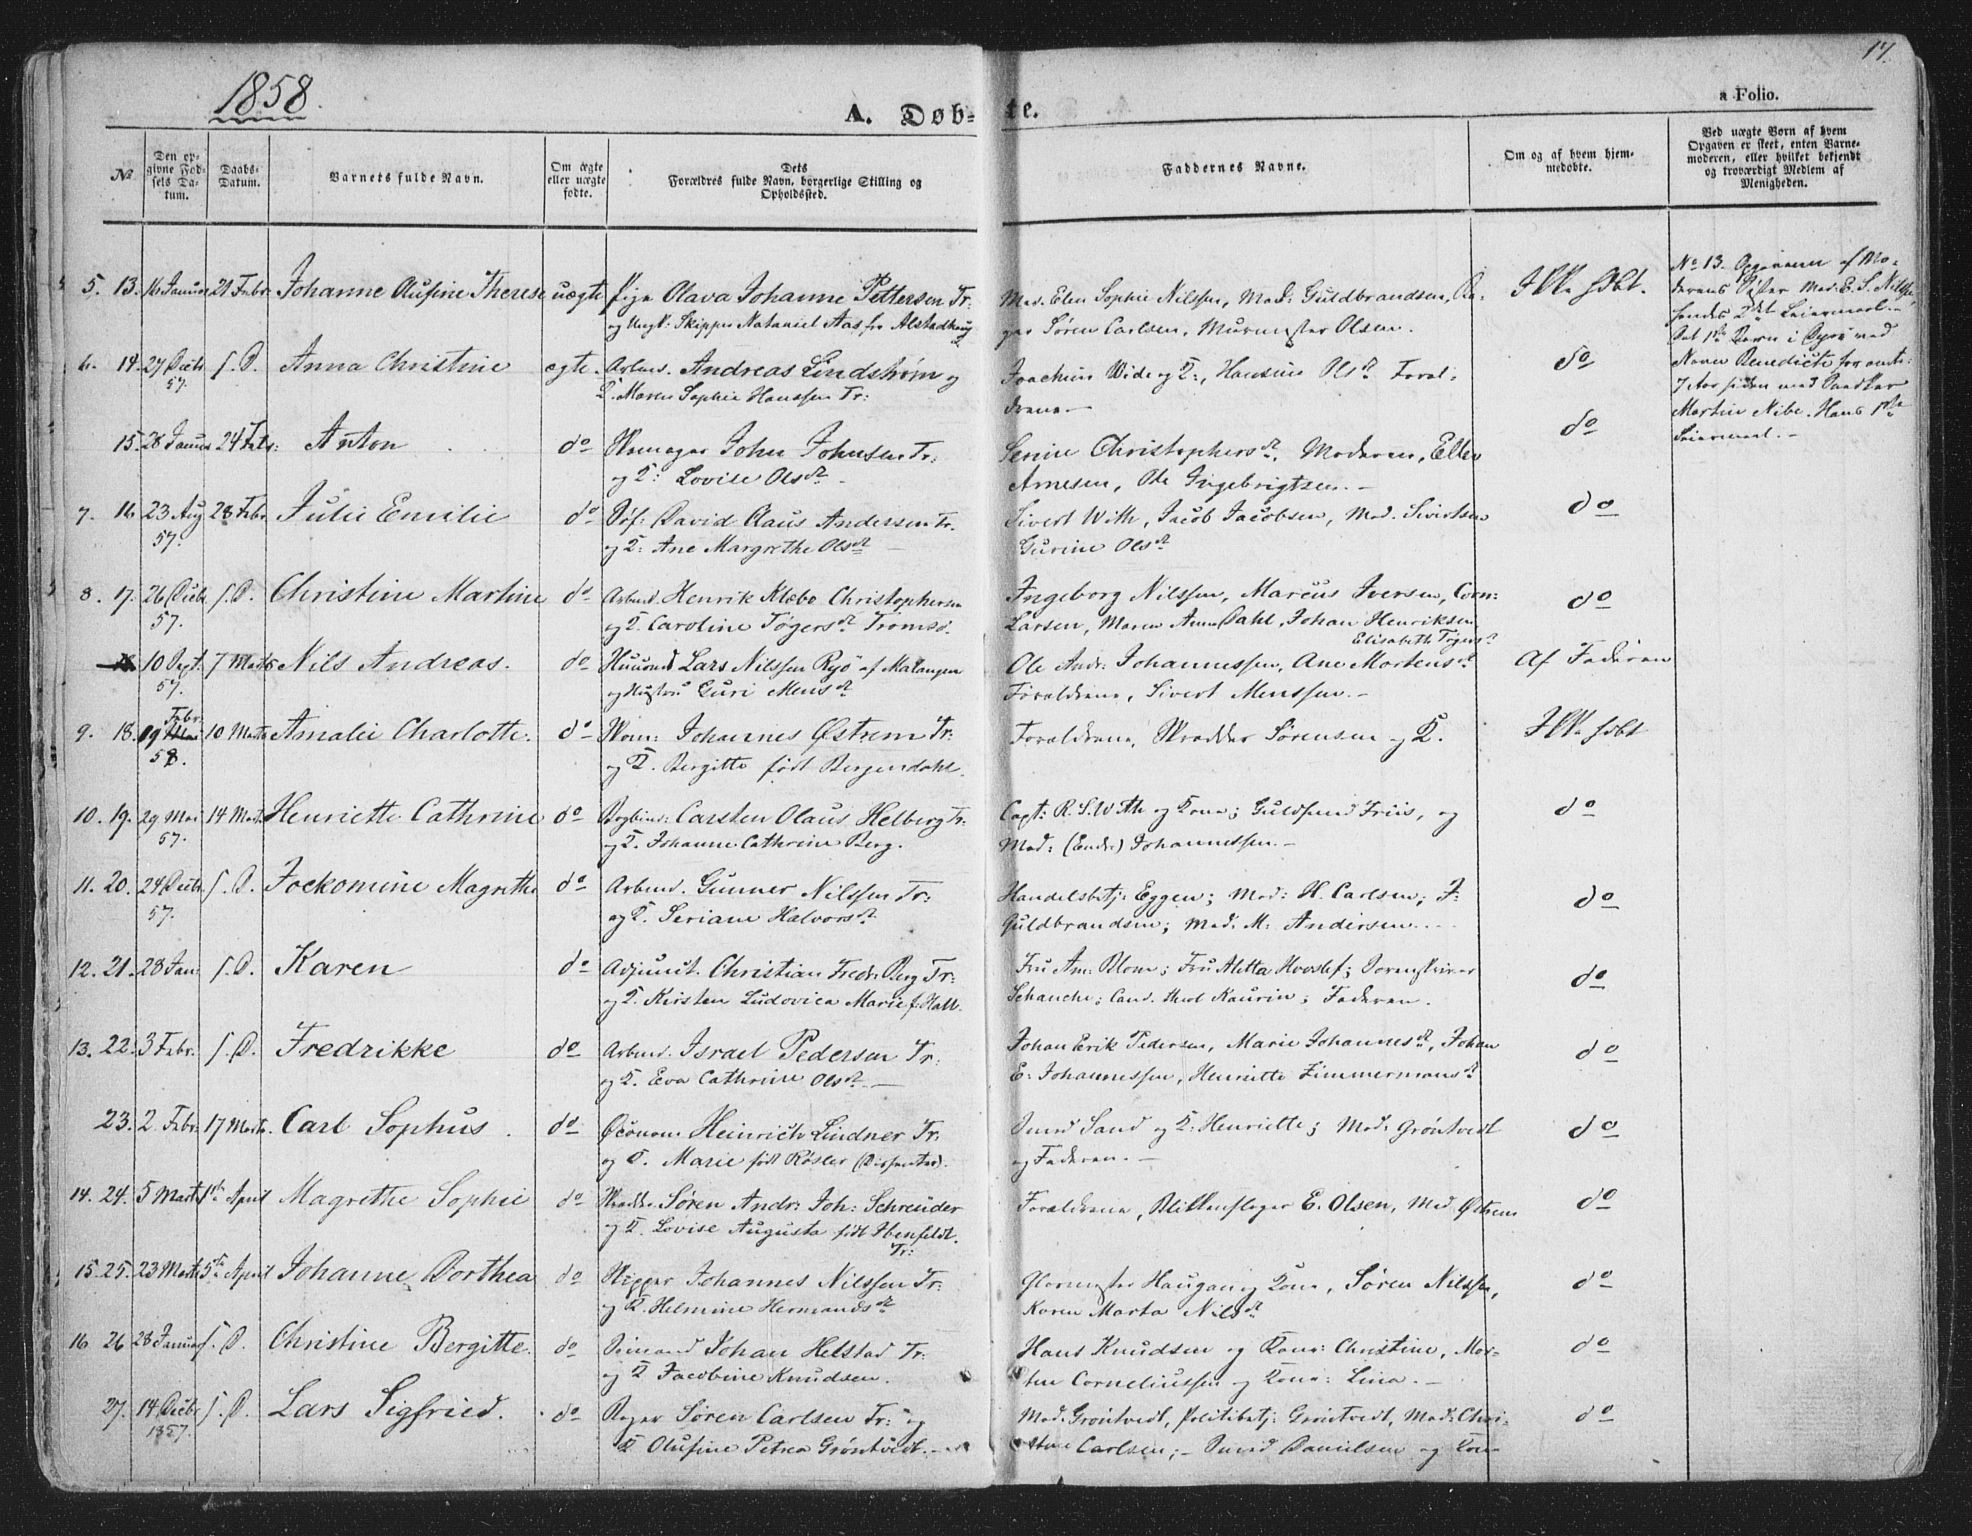 1858.
17.
A. Døb-
te.
a Folio.
No
Den op-
givne Fød-
sels Da-
tum.
Daabs-
Datum.
Barnets fulde Navn.
Om ægte
eller uægte
fødte.
Dets
Forældres fulde Navn, borgerlige Stilling og
Opholdssted.
Faddernes Navne.
Om og af hvem hjem-
medøbte.
Ved uægte Børn af hvem
Opgaven er skeet, enten Barne-
moderen, eller hvilket bekjendt
og troværdigt Medlem af
Menigheden.
5. 13. 16 Januar 21 Febr. Johanne Olufine Therese uægte Pige Olava Johanne Pettersen Tr.
og Ungk: Skipper Nataniel Aas fra Alstadhoug
Mad. Elen Sophie Nilssen, Mad: Guldbrandsen, Ba-
ger Søren Carlsen, Murmester Olsen.
Ikke hdbt.
No 13. Opgaven af Mo-
derens Søster Mad. E. S. Nilsse.
hendes 2det Leiermaal.
Det 1ste Barn i Dyrø ved
Navn Benedicte for omtr:
7 Aar siden med
Martin Nibe. Hans 1ste
Leiermaal.-
6. 14. 27 Decbr s. D. Anna Christine ægte. Arbmd. Andreas Lindstrøm og
57. K. Maren Sophie Hanssen Tr:
Joachim Wide og K:, Hansine Olsdt Foræl-
drene-
do
15. 28 Januar 24 Febr: Anton do Skomager John Johnsen Tr:
og K: Lovise Olsdt -
Serine Christophersdt, Moderen, Ellen
Arnesen, Ole Ingebrigtsen.-
do
7. 16. 23 Aug 28 Febr. Julie Emilie do Søf: David Claus Andersen Tr.
57. og K: Ane Margrethe Olsdt -
Sivert With, Jacob Jacobsen, Mad. Sivertsen
Gurine Olsdt
do
8. 17. 26 Decbr s. D. Christine Martine do Arbmd. Henrik Klæbo Christophersen
57. og K. Caroline Tøgersdt Tromsø.
Ingeborg Nilssen, Marcus Iversen, Corn:
Larsen, Maren Anna Dahl, Johan Henriksen
Elisabeth Tøgersdt
do
18 10 Sept. 7 Marts Nils Andreas. do Huusmd Lars Nilssen Ryø af Malangen
57. og Hustru Guri Mensdt
Ole Andr: Johannessen, Ane Mortensdt
Forældrene, Sivert Menssen.-
Af Faderen
9. 18. 19 Febr. 10 Marts Amalie Charlotte. do Skom: Johannes Østrem Tr:
58. og K. Bergitte født Bergendahl.
Forældrene, Skrædder Sørensen og K.
Ikke hdbt
10. 19. 29 Mai 14 Mart. Henriette Cathrine do Bogbind: Carsten Olaus Helberg Tr:
57. og K. Johanne Cathrine Berg.
Capt: R. S. With og Kone; Guldsmed Friis, og
Mad: (Endre) Johannessen.-
do
11. 20. 24 Decbr. s. D. Jockomine Magrethe do Arbmd. Gunner Nilssen Tr:
57. og K. Seriane Halvorsdt
Handelsbetj: Eggen; Mad: H. Carlsen; J:
Guldbrandsen; Mad. M: Andersen.
do
12. 21. 28 Jan: s. D. Karen do Adjunct. Christian Fredr. Berg Tr:
og K. Kirsten Ludovica Marie f. Hall.
Fru Am: Blom; Fru Aletta Hvoslef; Sorenskriver
Schanche; Cand. theol Kaurin; Faderen.
do
13. 22. 3 Febr. s. D. Fredrikke do Arbmd. Israel Pedersen Tr:
og K. Eva Cathrine Olsdt -
Johan Erik Pedersen, Marie Johannesdt, Johan
E: Johannessen, Henriette Zimmermansdt
do
23. 2 Febr: 17 Marts. Carl Sophus. do Oconom Heinrich Lindner Tr:
og K. Marie født Røsler (Dissenter).
Smed Sand og K: Henriette; Mad: Grøntvedt
og Faderen.-
do
14. 24. 5 Marts 1ste April Magrethe Sophie do Skrædder Søren Andr: Joh: Schreuder
og K Lovise Augusta født Ibenfeldt.
Tr:
Forældrene, Blikkenslager E. Olsen, Mad Østrem
do
15 25. 23 Marts 5te April Johanne Dorthea do Skipper Johannes Nilssen Tr:
og K. Helmine Hermandsdt
Glarmester Haugan og Kone, Søren Nilssen,
Karen Marta Nilsdt
do
16 26 28 Januar s. D. Christine Bergitte. do Johan Helstad Tr:
og K Jacobine Knudsen.
Hans Knudsen og Kone: Christine, Mor-
ten Corneliussen og Kone: Lina.-
do
27. 14 Decbr s. D. Lars Sigfried. do Bager Søren Carlsen Tr: og
1857. K Olufine Petrea Grøntvedt.-
Mad. Grøntvedt, Politibetj: Grøntvedt, Mad: Chri-
stine Carlsen;- Smed Danielsen og Kone
do